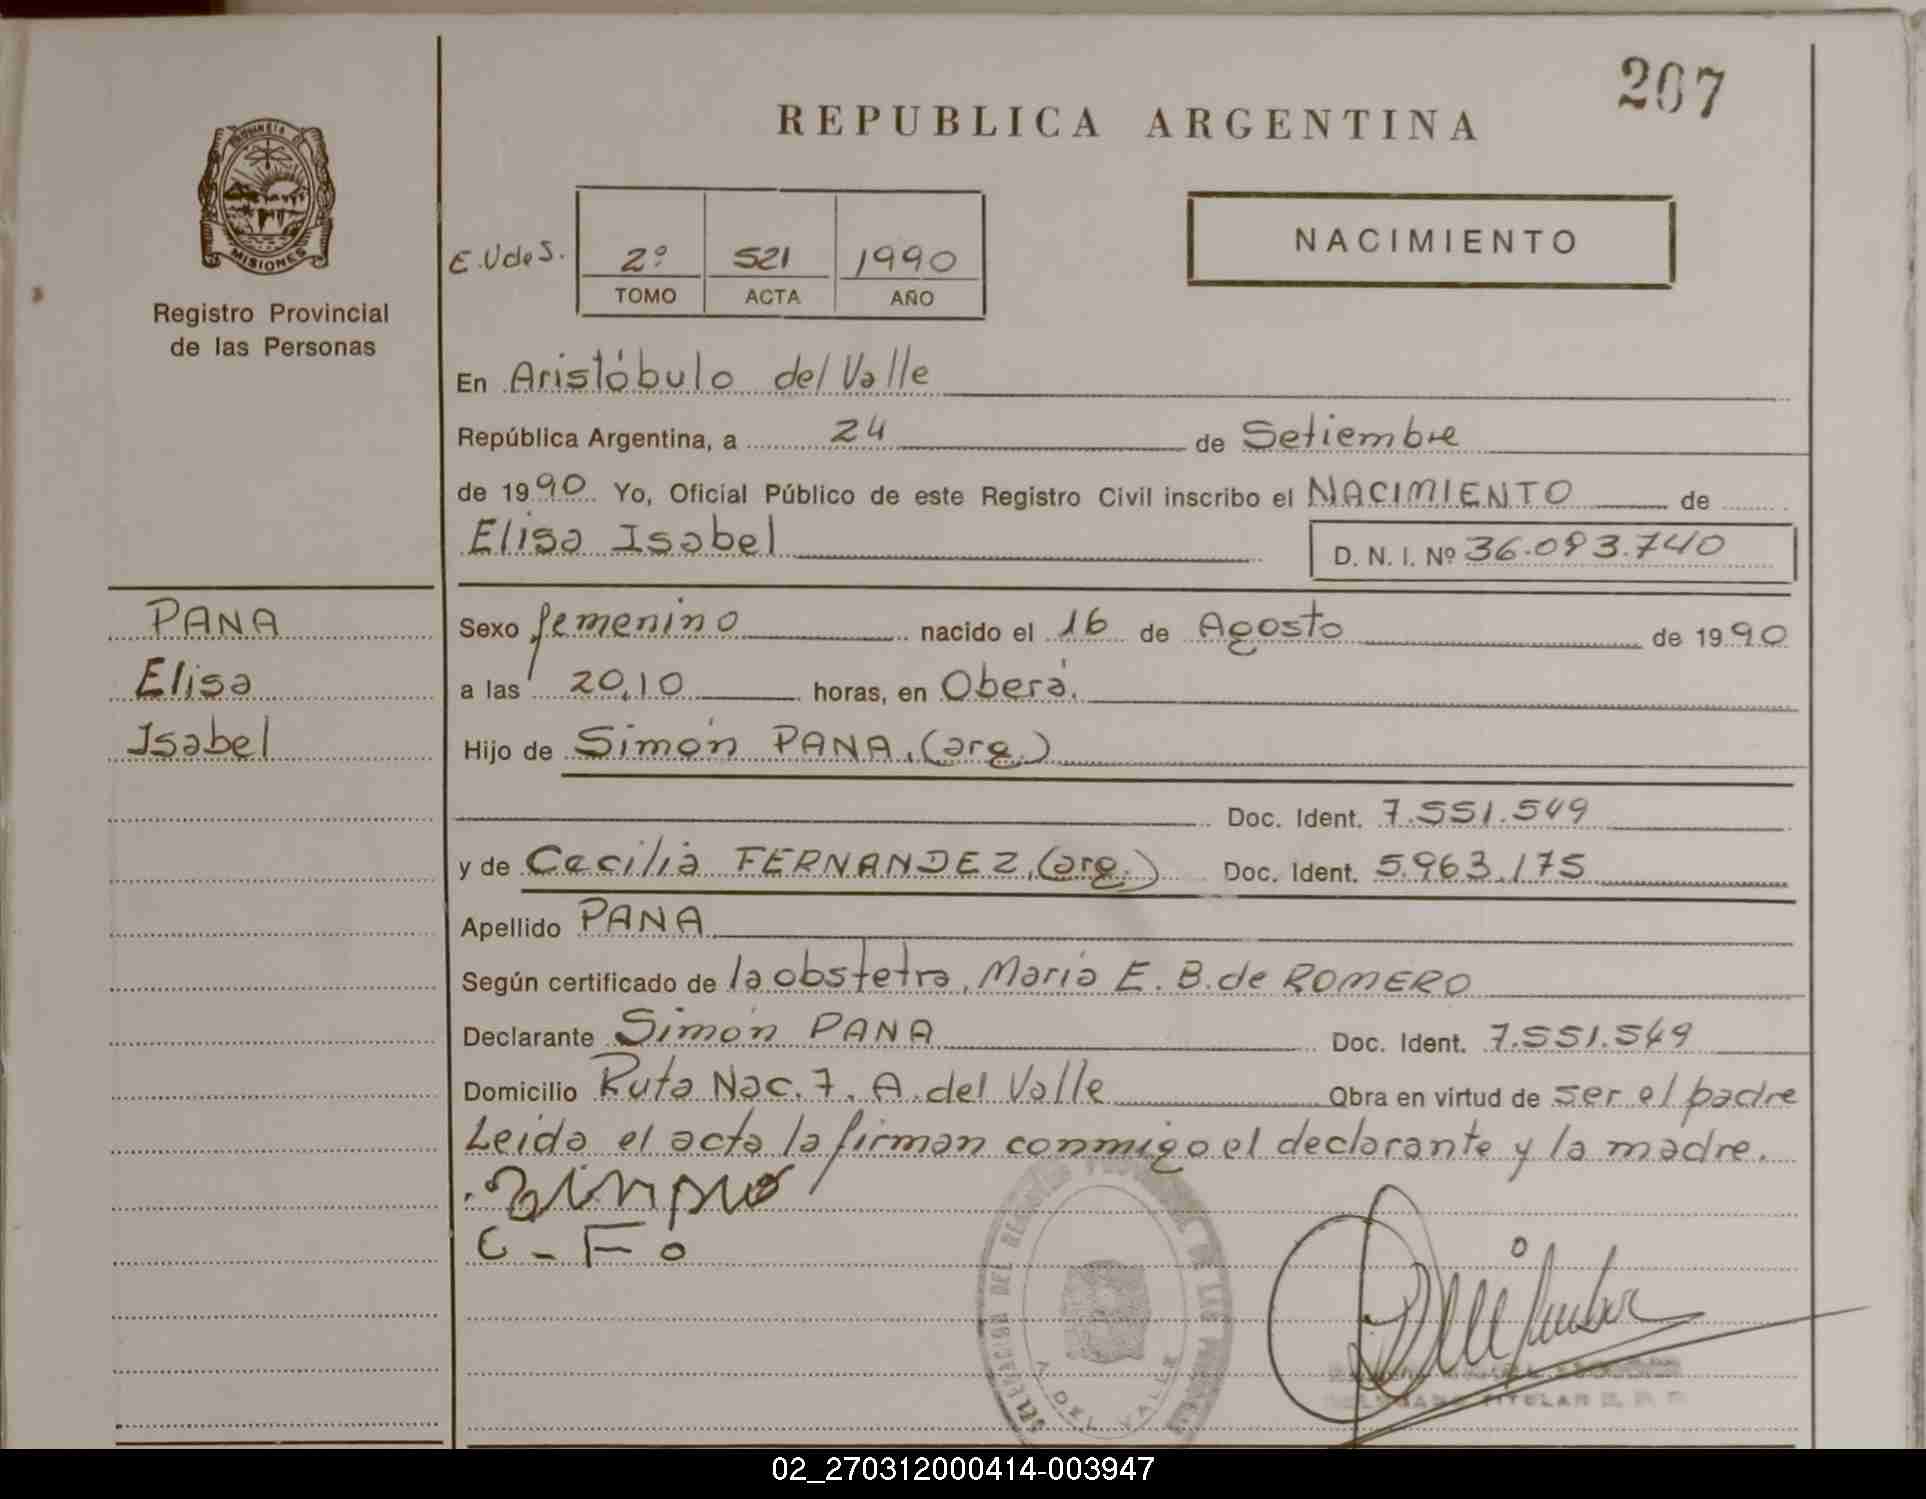 207
REPUBLICA ARGENTINA
MISIONES
Registro Provincial
de las Personas
E.UdeS.
2º 521 1990
TOMO ACTA AÑO
NACIMIENTO
En Aristóbulo del Valle
República Argentina, a 24 de Setiembre
de 1990 Yo, Oficial Público de este Registro Civil inscribo el NACIMIENTO de
Elisa Isabel D. N. I. Nº 36.093.740
PANA
Elisa
Isabel
Sexo femenino nacido el 16 de Agosto de 1990
a las 20,10 horas, en Oberá.
Hijo de Simón PANA, (arg.)
Doc. Ident. 7.551.549
y de Cecilia FERNANDEZ, (arg.) Doc. Ident. 5.963.175
Apellido PANA
Según certificado de la obstetra, Maria E. B. de ROMERO
Declarante Simón PANA Doc. Ident. 7.551.549
Domicilio Ruta Nac. 7, A. del Valle Obra en virtud de ser el padre
Leida el acta la firman conmigo el declarante y la madre.
C - Fo
A. DEL VALLE
TITULAR
02_270312000414-003947